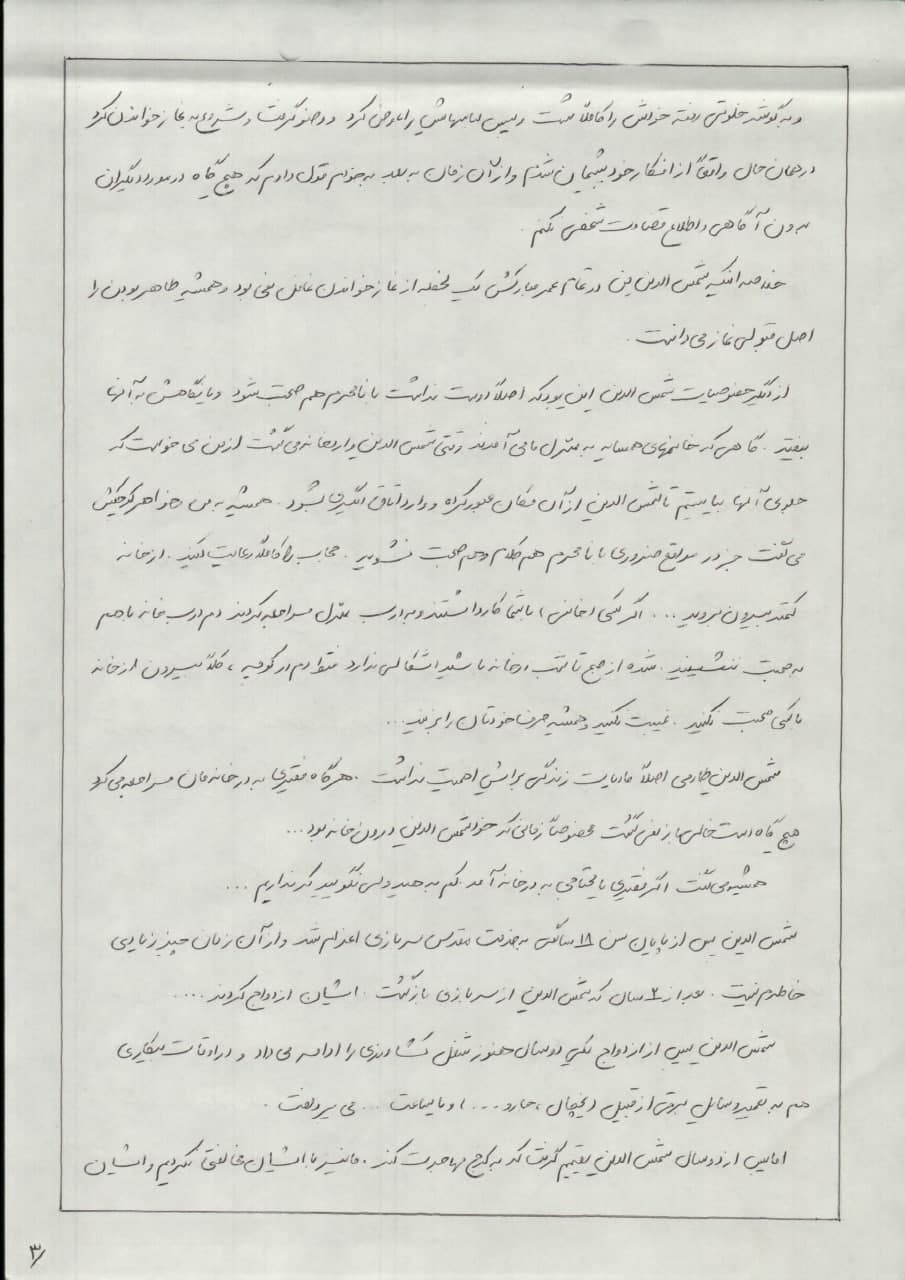 و به گوشه خلوتی رفته خودش را کاملاً شست و سپس لباسهایش را عوض کرد و وضو گرفت و شروع به نماز خواندن کرد
در همان حال واقعاً از افکار خود پشیمان شدم و از آن زمان به بعد به خودم قول دادم که هیچ گاه در مورد دیگران
بدون آگاهی و اطلاع قضاوت شخصی نکنم .
خلاصه اینکه شمس الدین من در تمام عمر مبارکش یک لحظه از نماز خواندن غافل نمی بود و همیشه طاهر بودن را
اصل قبولی نماز می دانست .
از دیگر خصوصیات شمس الدین این بود که اصلاً دوست نداشت با نامحرم هم صحبت شود و یا نگاهش به آنها
بیفتد . گاهی که خانمهای همسایه به منزل ما می آمدند وقتی شمس الدین وارد خانه می گشت از من می خواست که
جلوی آنها بایستم تا شمس الدین از آن مکان عبور کرده و وارد اتاق دیگری شود . همیشه به من و خواهر کوچکش
می گفت جز در مواقع ضروری با نامحرم هم کلام و هم صحبت نشوید . حجاب را کاملاً رعایت کنید . از خانه
کمتر بیرون بروید ... اگر کسی (خانمی) با شما کار داشتند و به درب منزل مراجعه کردند دم درب خانه با هم
به صحبت ننشینید . شده از صبح تا شب در خانه باشید اشکالی ندارد ولی در کوچه ، کلاً بیرون از خانه
با کسی صحبت نکنید . غیبت نکنید و همیشه حرف خودتان را بزنید ...
شمس الدین طارمی اصلاً مادیات زندگی برایش اهمیت نداشت . هرگاه فقیری به در خانه مان مراجعه می کرد
هیچ گاه دست خالی باز نمی گشت مخصوصاً زمانی که خود شمس الدین درون خانه بود ...
همیشه می گفت اگر فقیری یا محتاجی به در خانه آمد کم بدهید ولی نگویید که نداریم ...
شمس الدین پس از پایان سن ۱۸ سالگی به خدمت مقدس سربازی اعزام شد و از آن زمان چیز زیادی
خاطرم نیست . بعد از ۲ سال که شمس الدین از سربازی بازگشت . ایشان ازدواج کردند ....
شمس الدین پس از ازدواج یکی دو سال هنوز شغل کشاورزی را ادامه می داد و در اوقات بیکاری
هم به تعمیر وسایل برقی از قبیل (یخچال ، جارو ... ) و یا ساعت ... می پرداخت .
اما پس از دو سال شمس الدین تصمیم گرفت که به کرج مهاجرت کند . ما نیز با ایشان مخالفتی نکردیم و ایشان
۳/